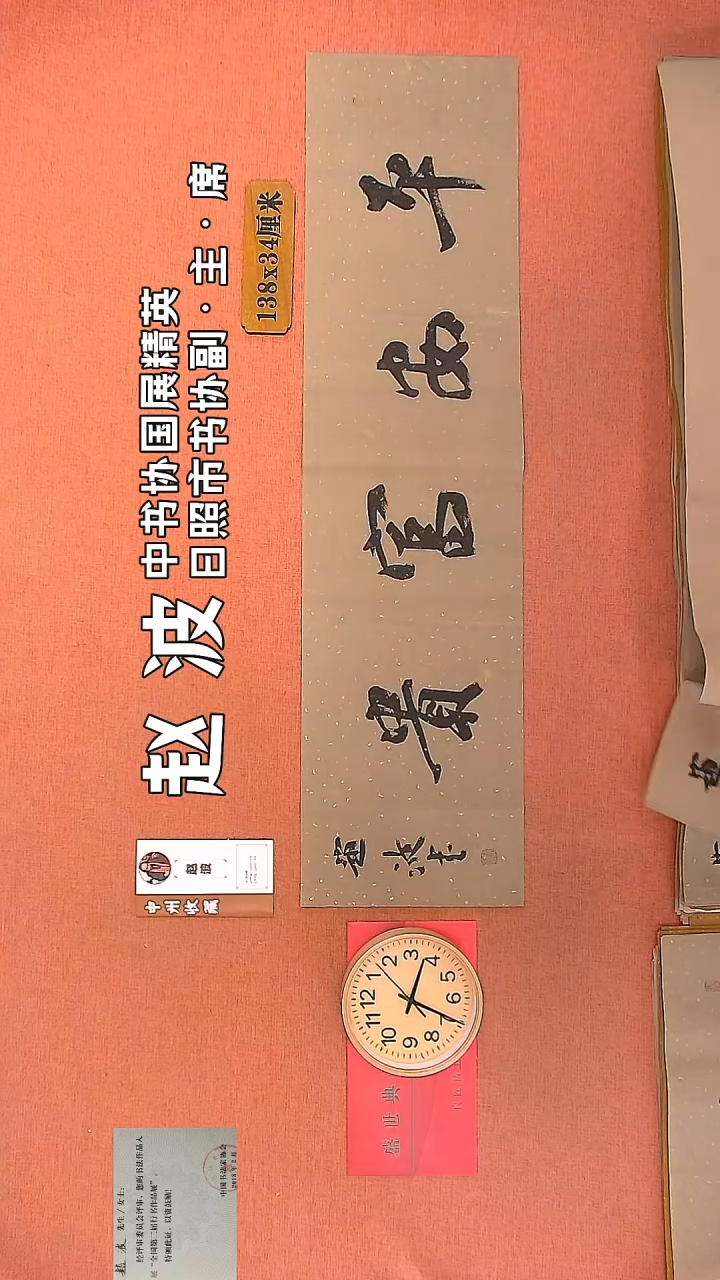 赵波
中书协国展精英
日照市书协副·主·席
138x34厘米
平安富貴
赵波
中州收藏
12
1
2
3
4
5
6
7
8
9
10
11
盛世典
赵波 先生/女士:
经评审委员会评审,您的书法作品入
展“全国第二届行书作品展”。
特颁此证,以资鼓励!
中国书法家协会